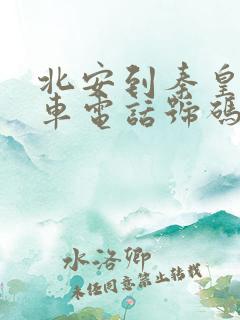 北安到秦皇
車電話號碼
水洛卿
未任同意禁止轉載